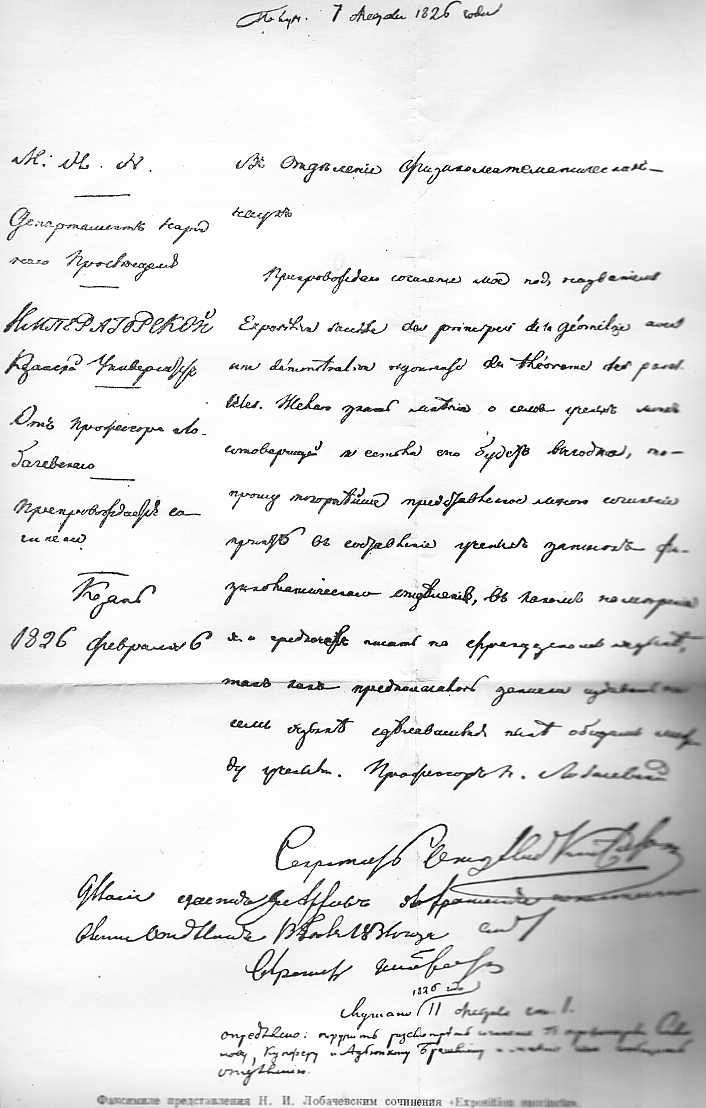 Получ. 7 февраля 1826 года
М. Н. П.
Департаментъ Народ
наго Просвѣщенія
ИМПЕРАТОРСКОЙ
Казанск. Университетъ
Отъ Профессора Ло-
бачевскаго
Препровождается со-
чиненіе
Казань
1826 февраля 6
Въ Отдѣленіе физикоматематическихъ
наукъ
Препровождаю сочиненіе мое подъ названіемъ
Exposition succincte des principes de la Géométrie avec
une démonstration rigoureuse du théorème des paral
lèles. Желаю знать мнѣніе о семъ ученыхъ моихъ
сотоварищей и если оно будетъ выгодно, то
прошу покорнѣйше представленное мною сочиненіе
принять въ составленіе ученыхъ записокъ фи-
зикоматическаго отдѣленія, въ какомъ намѣреніи
я и предпочелъ писать на французскомъ языкѣ,
такъ какъ предполагалось записки издавать на
семъ языкѣ сдѣлавшимся нынѣ общимъ меж
ду учеными. Профессоръ Н. Лобачевскій
Секретарь
1834 года
Секретарь
1826 года
Слушано 11 февраля
опредѣлено: поручить разсмотрѣть сочиненіе Гг профессорамъ Симо
нову, Купферу и Адъюнкту Брашману и мнѣніе свое сообщить
отдѣленію.
Факсимиле представления Н. И. Лобачевским сочинения «Exposition succincte».